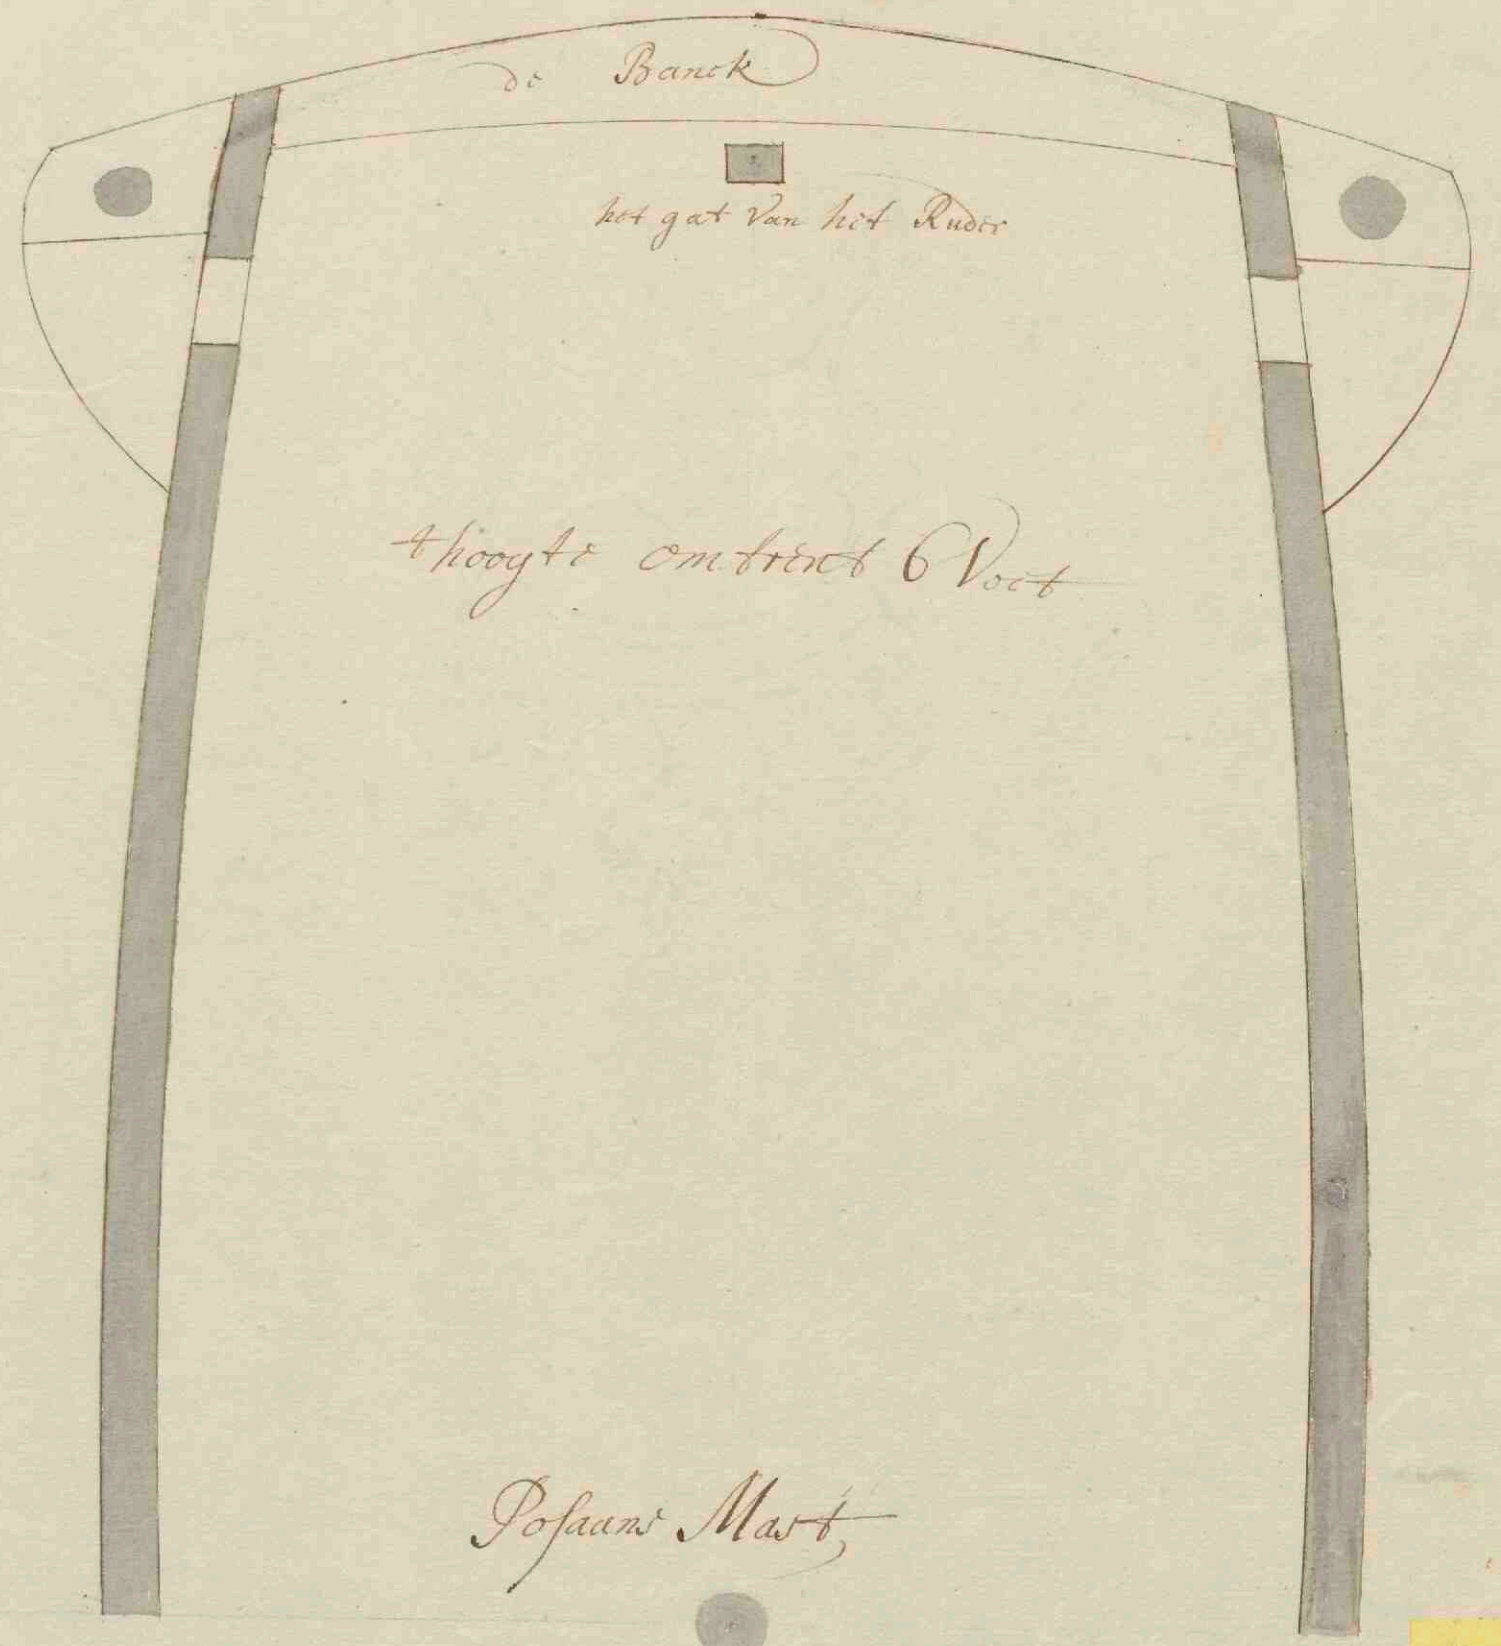 de Banck
het gat Van het Ruder
t hoogte omtrent 6 Voet
Posaans Mast